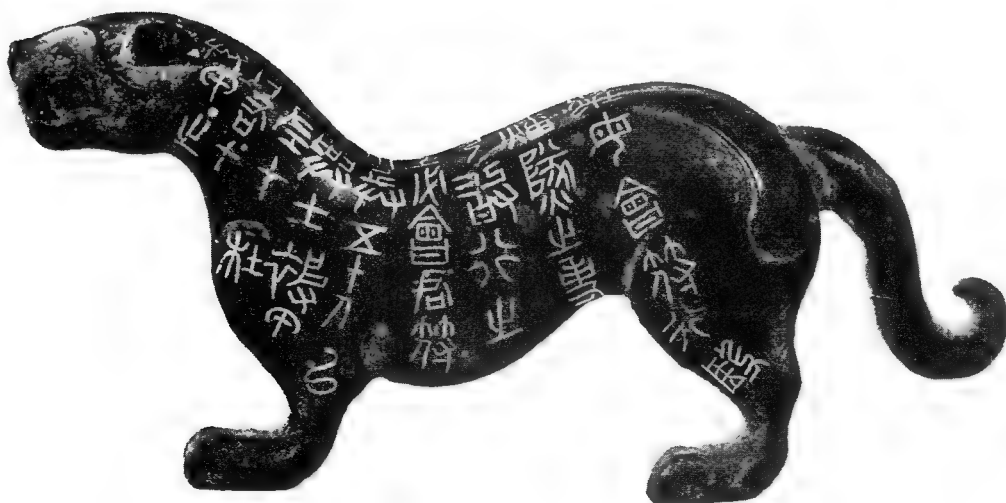 兵甲之符
右才君
左才杜
凡興士被甲
用兵五十人以
上必會君符
乃敢行之
燔㸂之事
雖母會符行殹